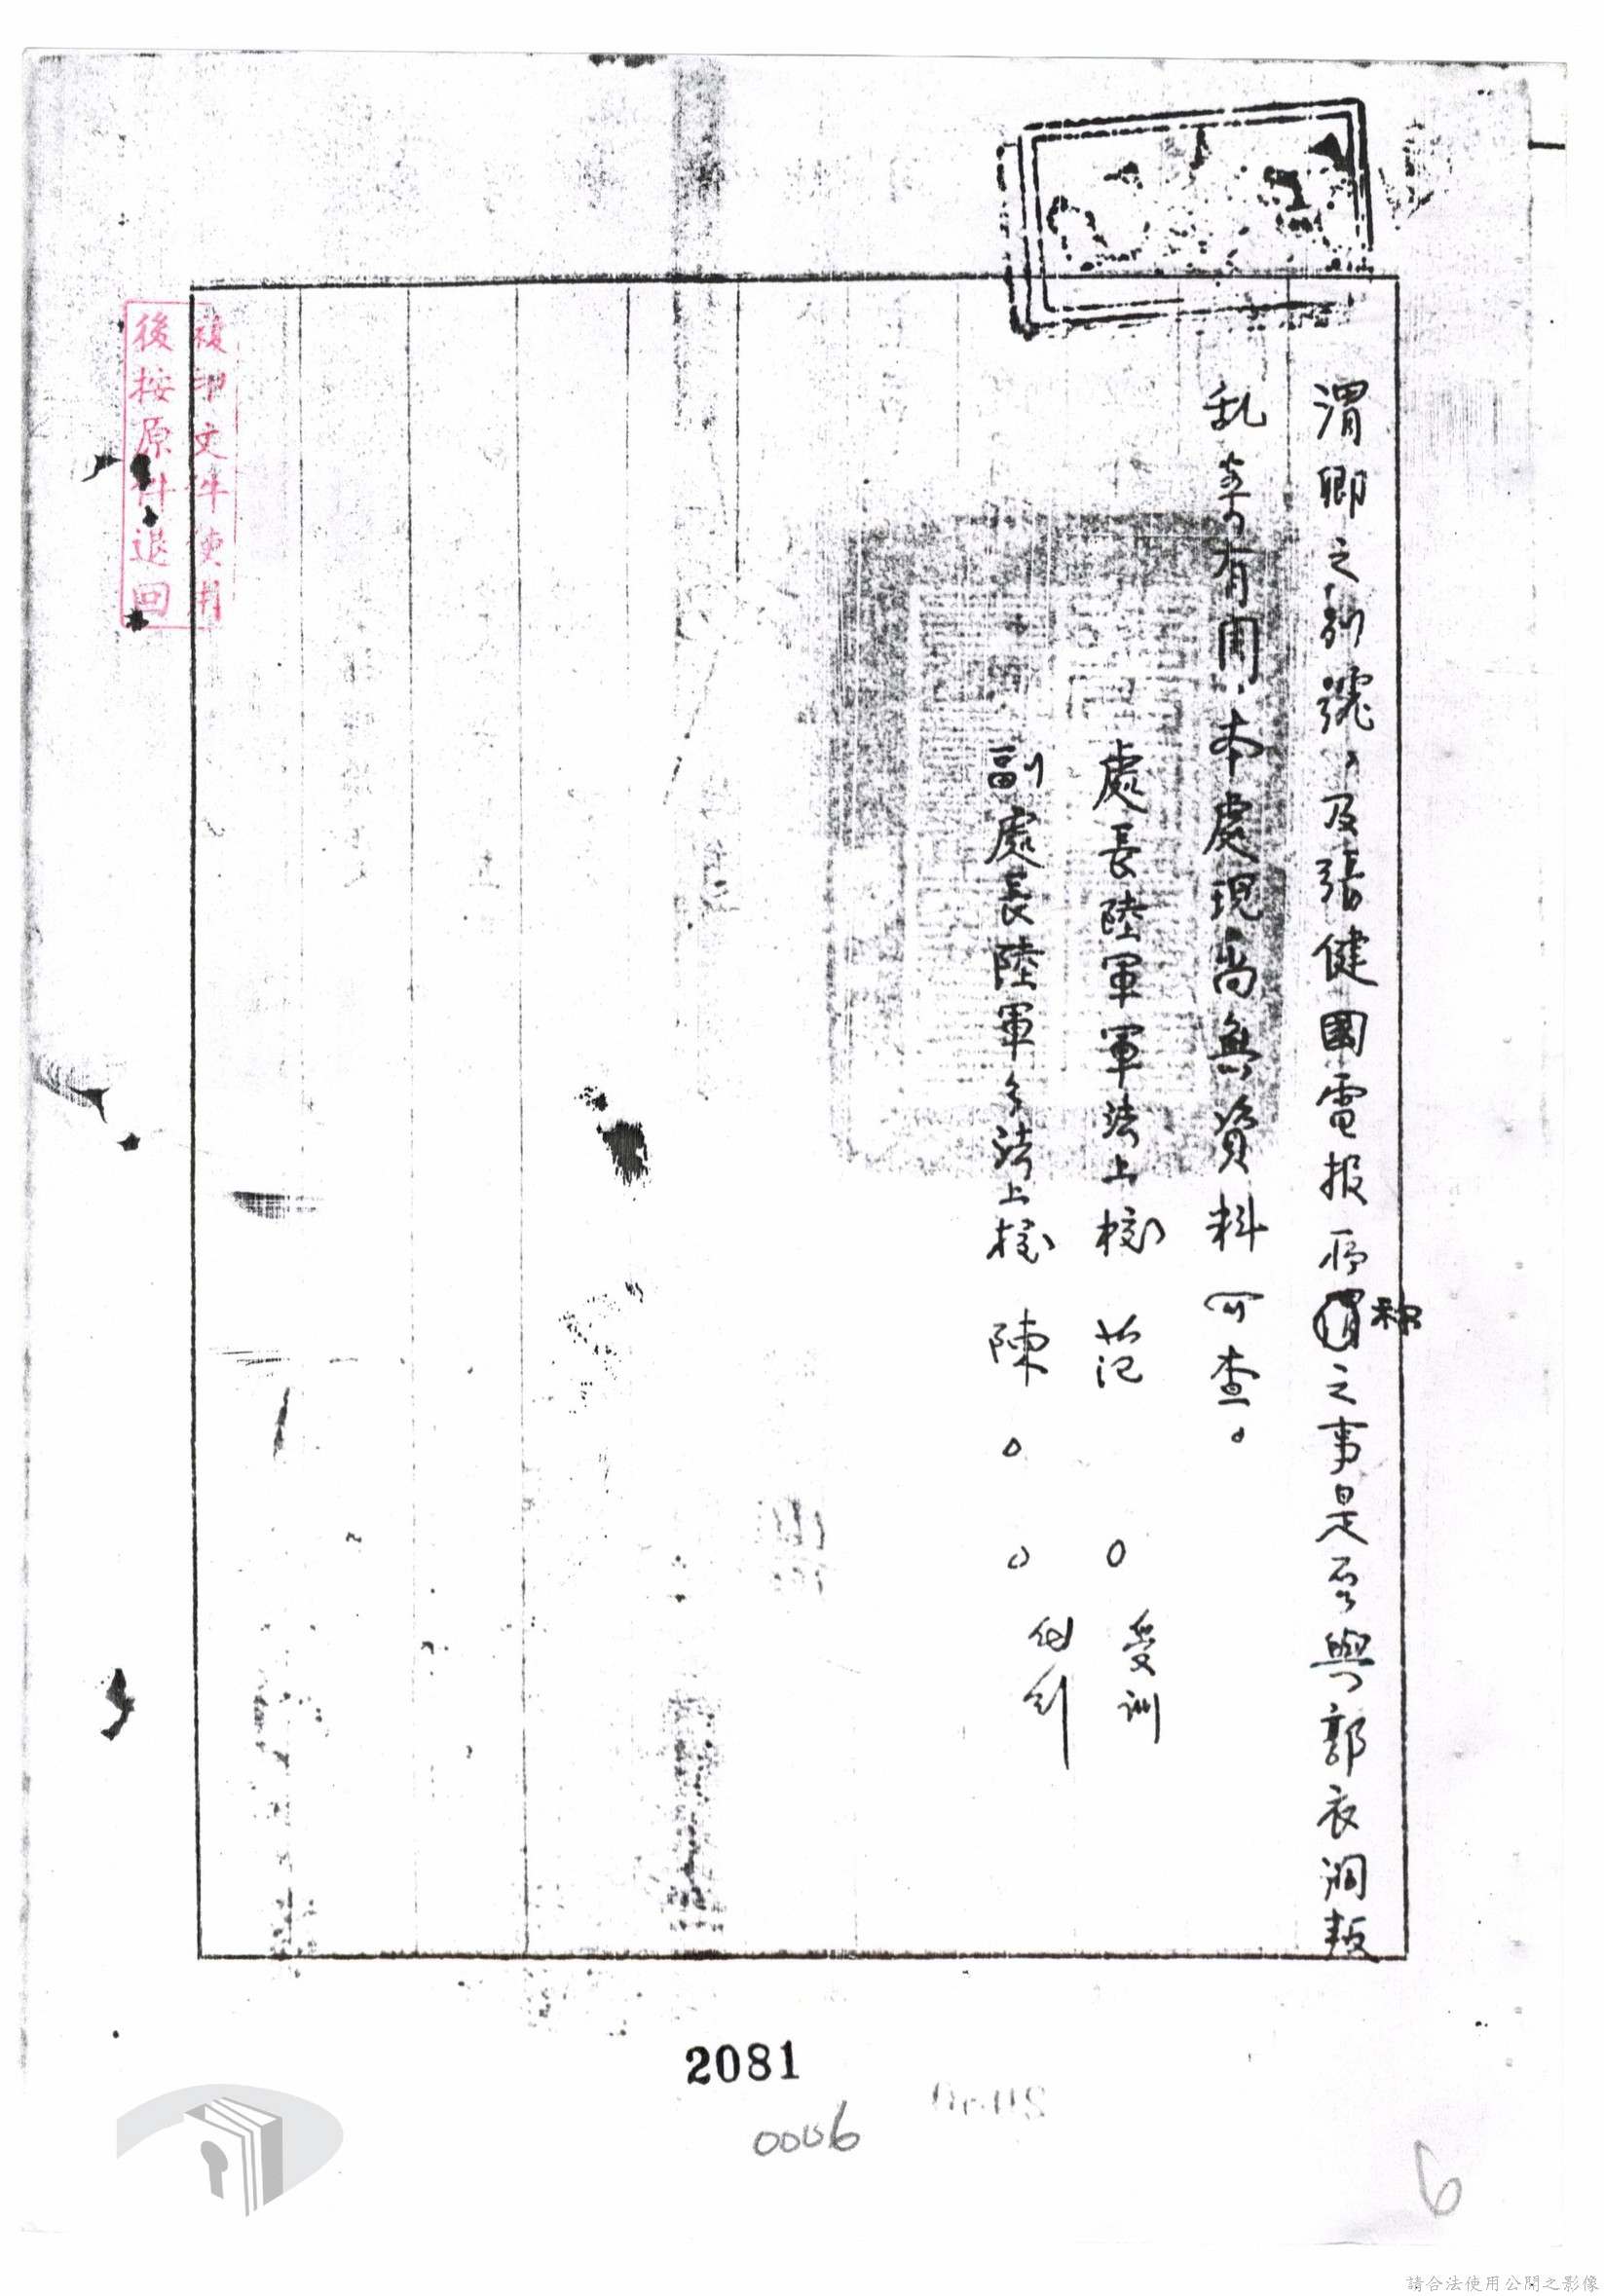 渭卿之別號、及張健國電報所稱之事是否與郭衣洞叛
乱案有關、本處現尚無資料可查。
處長陸軍軍法上校 范 受訓
副處長陸軍軍法上校 陳
複印文件使用
後按原件退回
2081
0006
6
請合法使用公開之影像